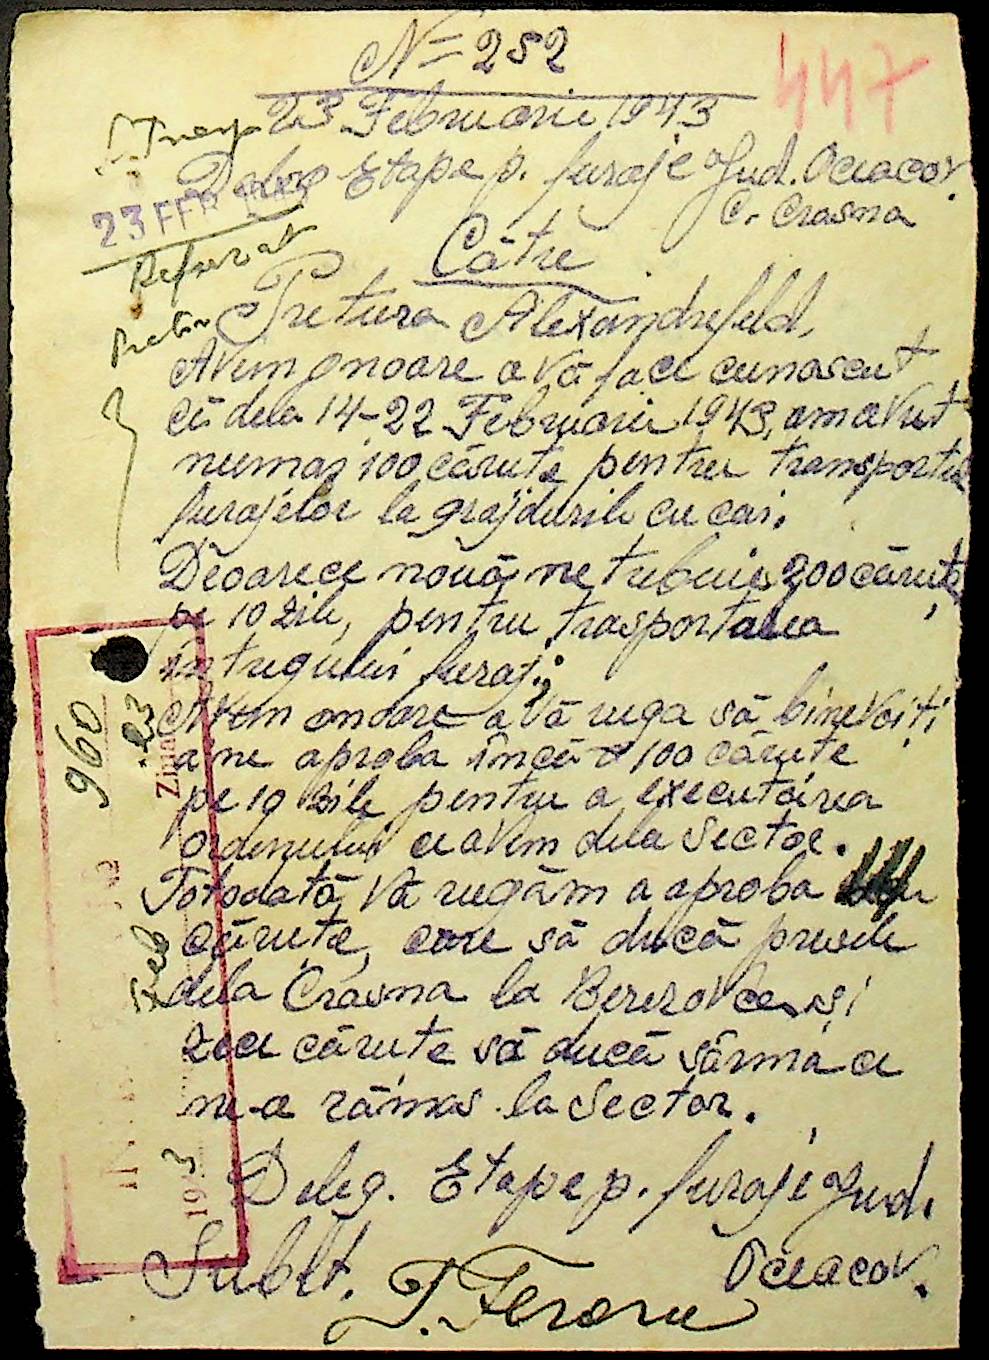 N= 252
447
23 Februarie 1943
Deleg Etape p. furaje Jud. Oceacov.
C. Crasna
23 FEB 1943
Referat
Către
Pretura Alexandrefeld,
Avem onoare a vă face cunoscut
că dela 14-22 Februarie 1943, am avut
numai 100 căruțe pentru transportul
furajelor la grajdurile cu cai.
Deoarece nouă ne trebuie 200 căruțe
pe 10 zile, pentru trasportarea
întregului furaj;
Avem onoare a vă ruga să binevoiți
a ne aproba încă 100 căruțe
pe 10 zile pentru a executarea
ordinului ce avem dela Sector.
Totodată Vă rugăm a aproba
căruțe, care să ducă presele
dela Crasna la Berezovca și
zece căruțe să ducă sârma ce
ne-a rămas la Sector.
Deleg. Etape p. furaje Jud.
Oceacov.
Sublt. T. Feraru
960
23
Ziua
Feb
1943